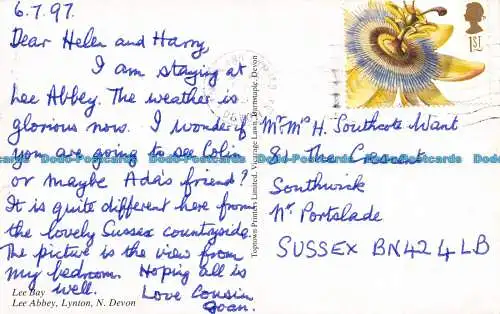 6.7.97.
Dear Helen and Harry,
I am staying at
Lee Abbey. The weather is
glorious now. I wonder if
you are going to see Colin
or maybe Ada's friend?
It is quite different here from
the lovely Sussex countryside.
The picture is the view from
my bedroom. Hoping all is
well. Love Cousin
Joan.
Lee Bay
Lee Abbey, Lynton, N. Devon
Toptown Printers Limited, Vicarage Lawn, Barnstaple, Devon
1ST
Mr. Mrs H. Southcote Want
81 The Crescent
Southwick
Nr Portslade
SUSSEX BN42 4LB
Dodo-Postcards Dodo-Postcards Dodo-Postcards Dodo-Postcards
Dodo-Postcards Dodo-Postcards Dodo-Postcards Dodo-Postcards